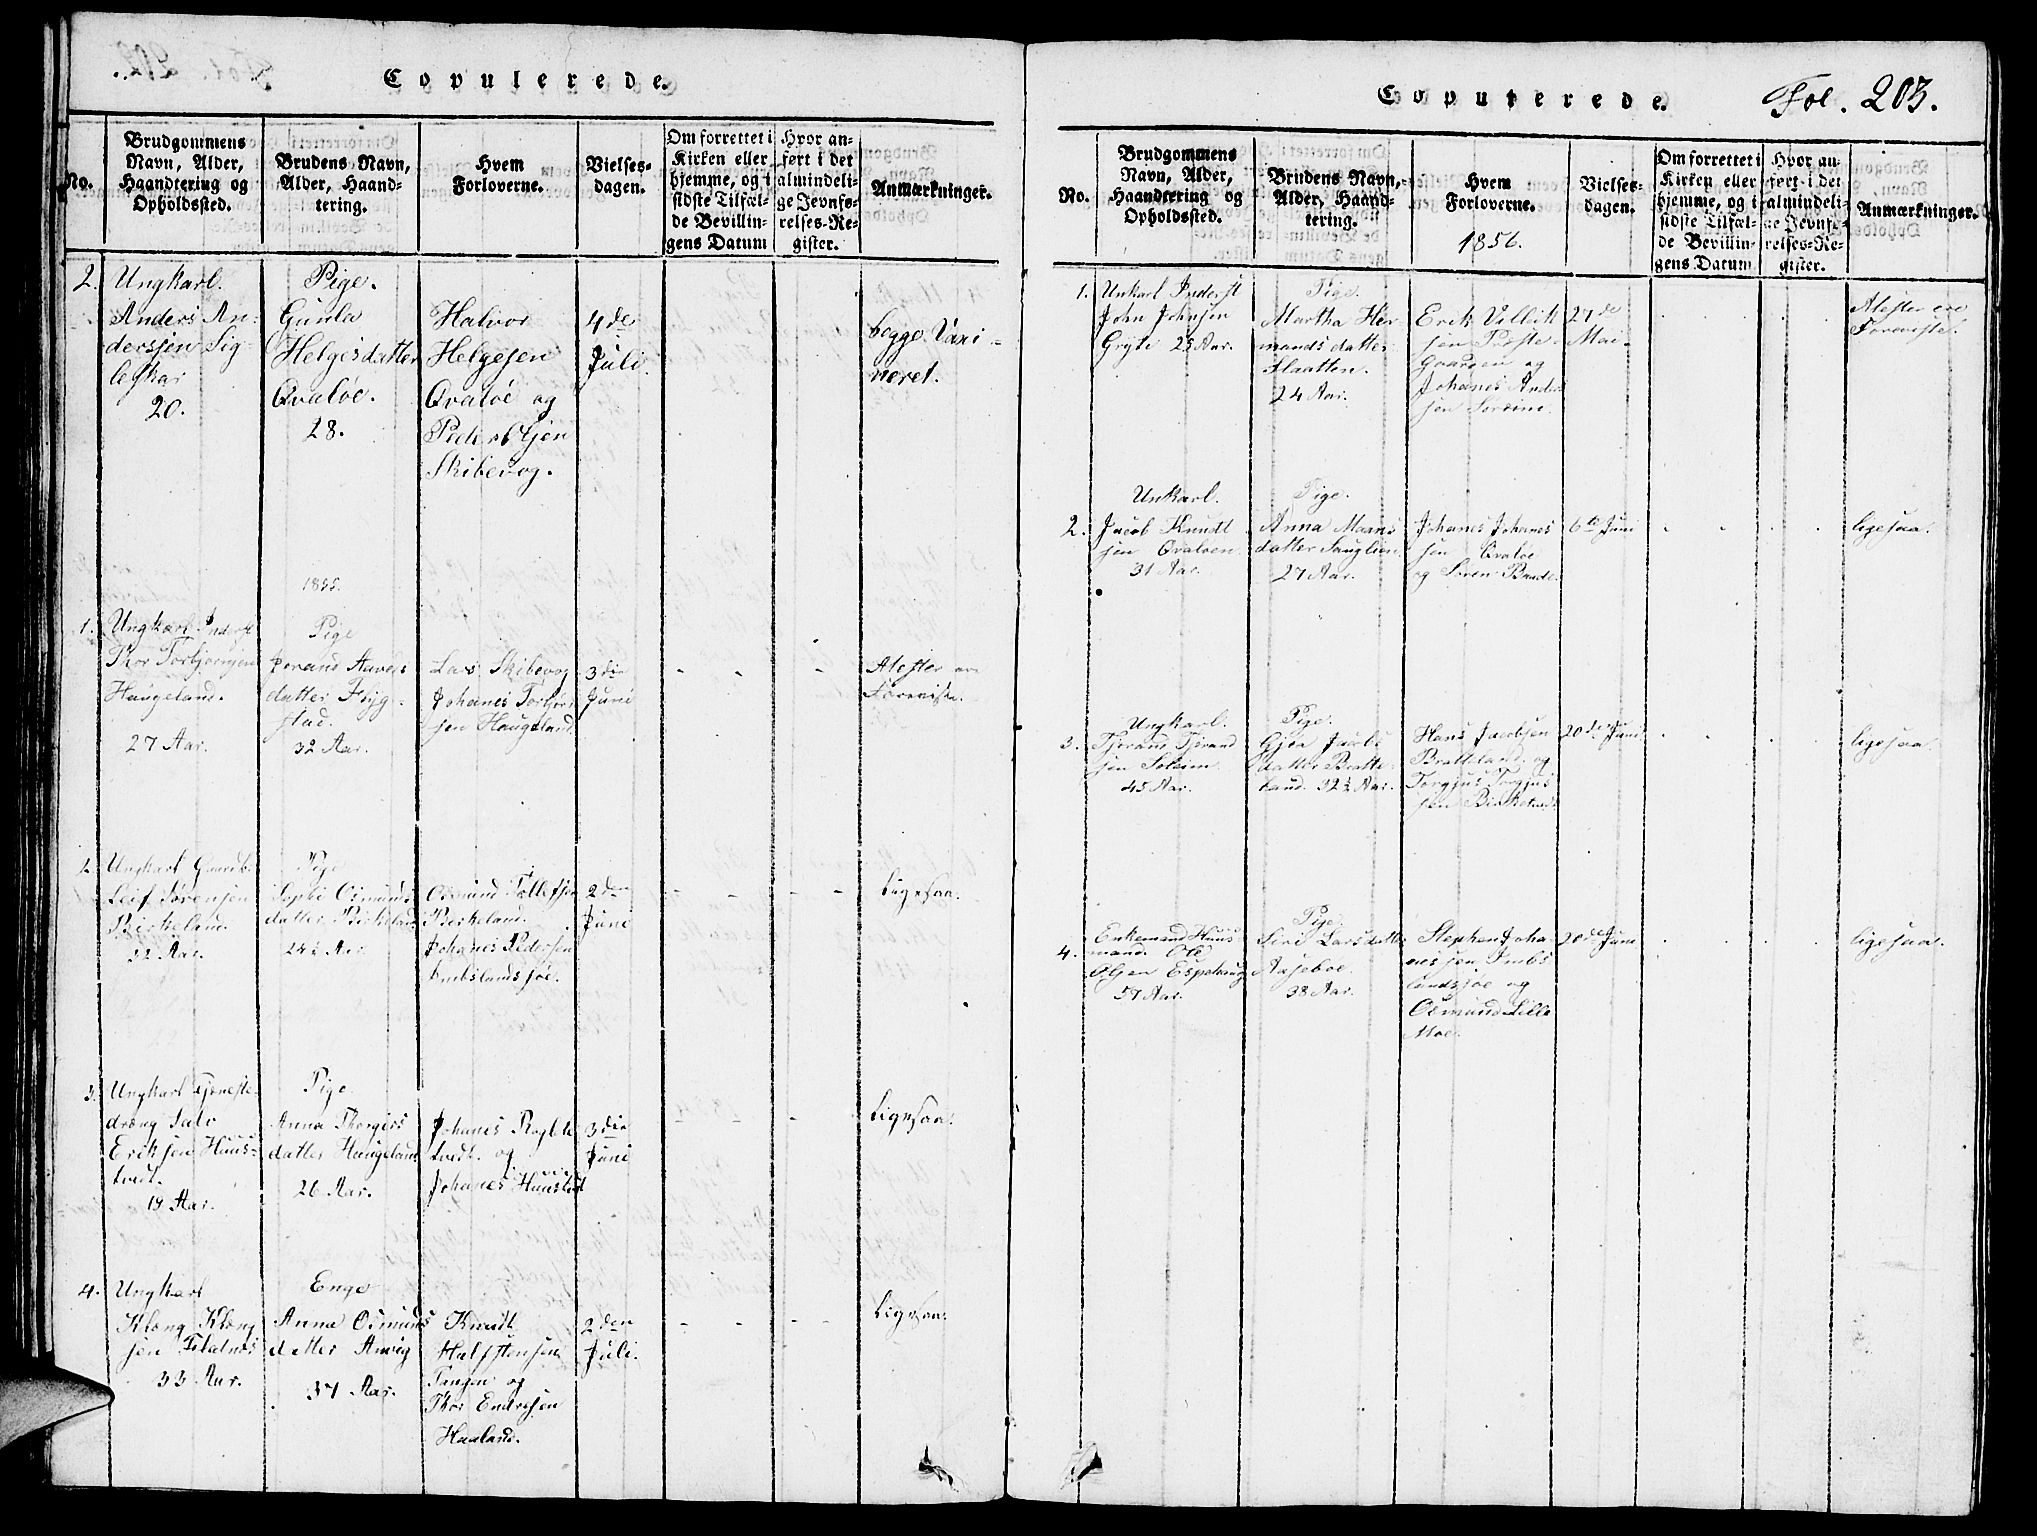 Copulerede.
No.
Brudgommens
Navn, Alder,
Haandtering og
Opholdssted.
Brudens Navn,
Alder, Haand-
tering.
Hvem
Forloverne.
Vielses-
dagen.
Om forrettet i
Kirken eller
hjemme, og i
sidste Tilfæl-
de Bevillin-
gens Datum
Hvor an-
ført i det
almindeli-
ge Jevnfø-
relses-Re-
gister.
Anmærkninger.
2.
Ungkarl.
Anders An-
derssen Sig-
lefkar
20.
Pige.
Gunla
Helgesdatter
Qvaløe.
28.
Halvor
Helgesen
Qvaløe og
Peder
Skibevog.
4de
Juli.
begge Vaxi-
neret.
1855.
1.
Ungkarl Inderst
Thor Torbjørnsen
Haugeland.
27 Aar.
Pige
datter
stad.
32 Aar.
Lars Skibevog
Johanes Torbjørn
sen Haugeland.
3die
Juni
Atester ere
Foreviste.
2
Ungkarl Gaardb.
Leif Sørensen
Birkeland.
32 Aar.
Pige
Sophi Osmunds
datter Birkeland
24½ Aar
Osmund Tollefsen
Birkeland.
Johanes Pedersen
Imbslandssjøe.
2den
Juni
Ligesaa.
3.
Ungkarl Tjeneste-
dreng Salv
Eriksen Huus-
tvedt.
19 Aar.
Pige
Anna Thorgers
datter Haugeland
26 Aar.
Johanes
tvedt. og
Johanes Huustvedt
3die
Juni
Ligesaa.
4.
Ungkarl
Klæng Klæng
sen Fladnes
33 Aar.
Enge
Anna Osmunds
datter Anvig
37 Aar.
Knudt
Halfstensen
Tangen og
Thor Endresen
Haaland.
2den
Juli.
Ligesaa.
Copulerede. Fol. 203.
No.
Brudgommens
Navn, Alder,
Haandtering og
Opholdssted.
Brudens Navn,
Alder, Haand-
tering.
Hvem
Forloverne.
1856.
Vielses-
dagen.
Om forrettet i
Kirken eller
hjemme, og i
sidste Tilfæl-
de Bevillin-
gens Datum
Hvor an-
ført i det
almindeli-
ge Jevnfø-
relses-Re-
gister.
Anmærkninger.
1.
Unkarl Inderst
John Johnsen
Gryte 25 Aar.
Pige.
Martha Her
mandsdatter
Slaatten.
24 Aar.
Erik Villik
sen Præste-
gaarden og
Johanes Ander
sen
27de
Mai
Atester ere
Foreviste.
2.
Unkarl.
Jacob Knudt
sen Qvaløen
31 Aar.
Pige.
Anna Maans
datter
27 Aar.
Johanes Johanes
sen Qvaløe
og Søren
6te Juni
ligesaa.
3.
Ungkarl.
Tjerand Tjerand
sen Soleim
45 Aar.
Pige.
Gjøa Jacobs
datter Bratte-
land. 32½ Aar.
Hans Jacobsen
Bratteland. og
Torgjus Torgjus
sen Birkeland
20de Juni
ligesaa.
4.
Enkemand Huus
mand. Ole
Olsen Espeland
57 Aar.
Pige.
Siri Larsdatter
Aaseboe.
38 Aar.
Stephen Joha
nessen Imbs
landssjøe og
Osmund Lille
Moe.
20de Juni
ligesaa.